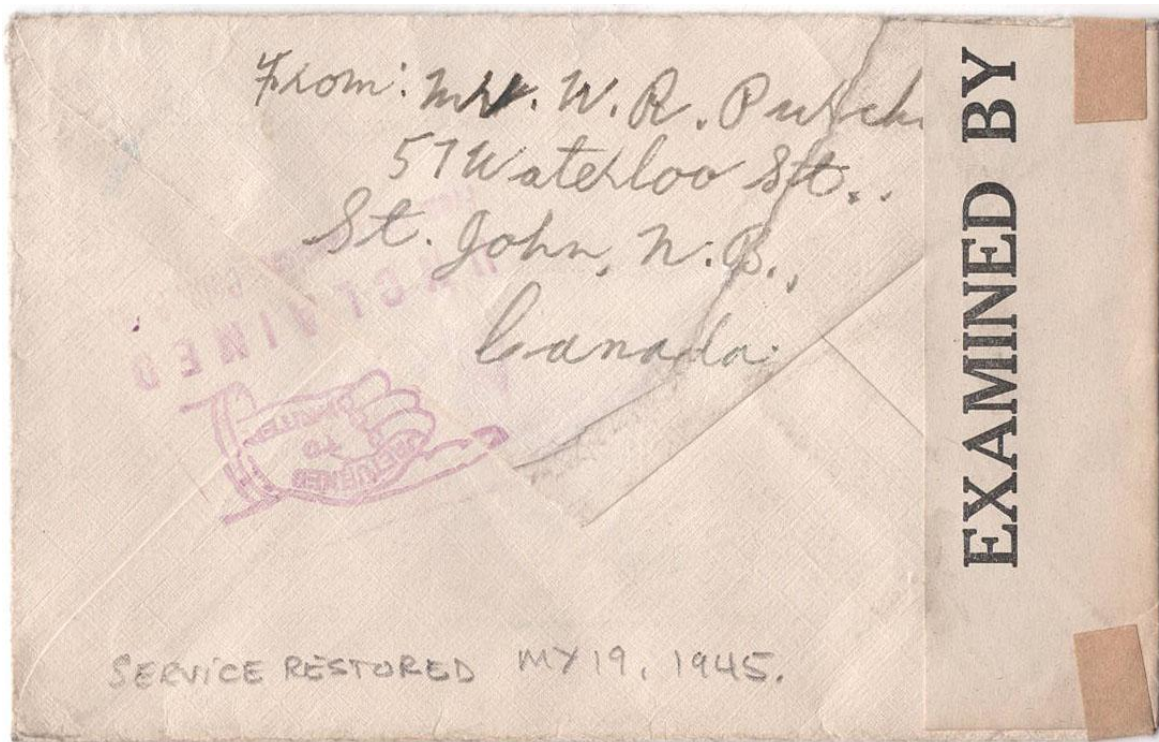 From: Mrs. W. R.
57 Waterloo St.,
St. John, N.B.,
Canada.
UNCLAIMED
RETURNED
TO
WRITER
SERVICE RESTORED MY 19, 1945.
EXAMINED BY